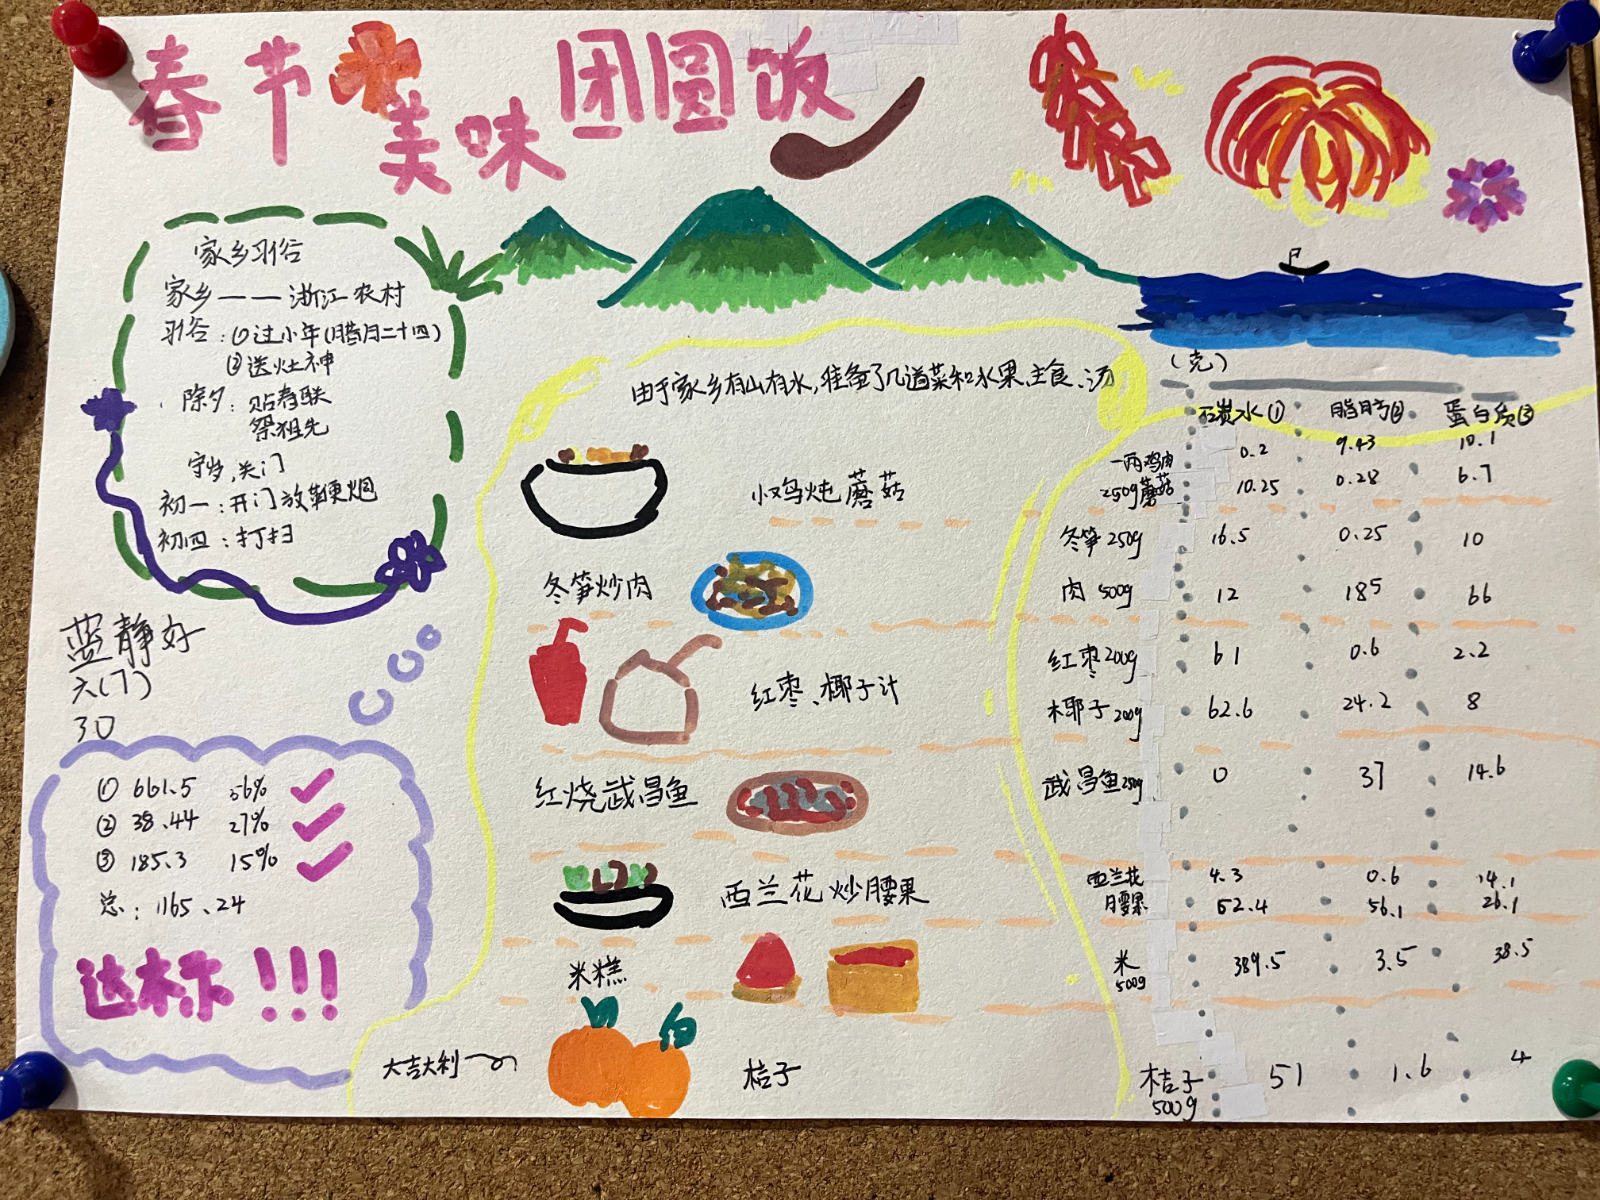 春节美味团圆饭
家乡习俗
家乡——浙江农村
习俗:①过小年(腊月二十四)
②送灶神
除夕:贴春联
祭祖先
守岁,关门
初一:开门放鞭炮
初四:打扫
蓝静好
六(7)
30
① 661.5 56%
② 38.44 27%
③ 185.3 15%
总:1165.24
达标!!!
由于家乡有山有水,准备了几道菜和水果、主食、汤
小鸡炖蘑菇
冬笋炒肉
红枣、椰子汁
红烧武昌鱼
西兰花炒腰果
米糕
大吉大利
桔子
(克)
碳水① 脂肪② 蛋白质③
一两鸡肉 0.2 9.43 10.1
250g蘑菇 10.25 0.28 6.7
冬笋250g 16.5 0.25 10
肉500g 12 185 66
红枣200g 61 0.6 2.2
椰子200g 62.6 24.2 8
武昌鱼250g 0 37 14.6
西兰花 4.3 0.6 14.1
腰果 52.4 56.1 26.1
米500g 389.5 3.5 38.5
桔子 51 1.6 4
500g